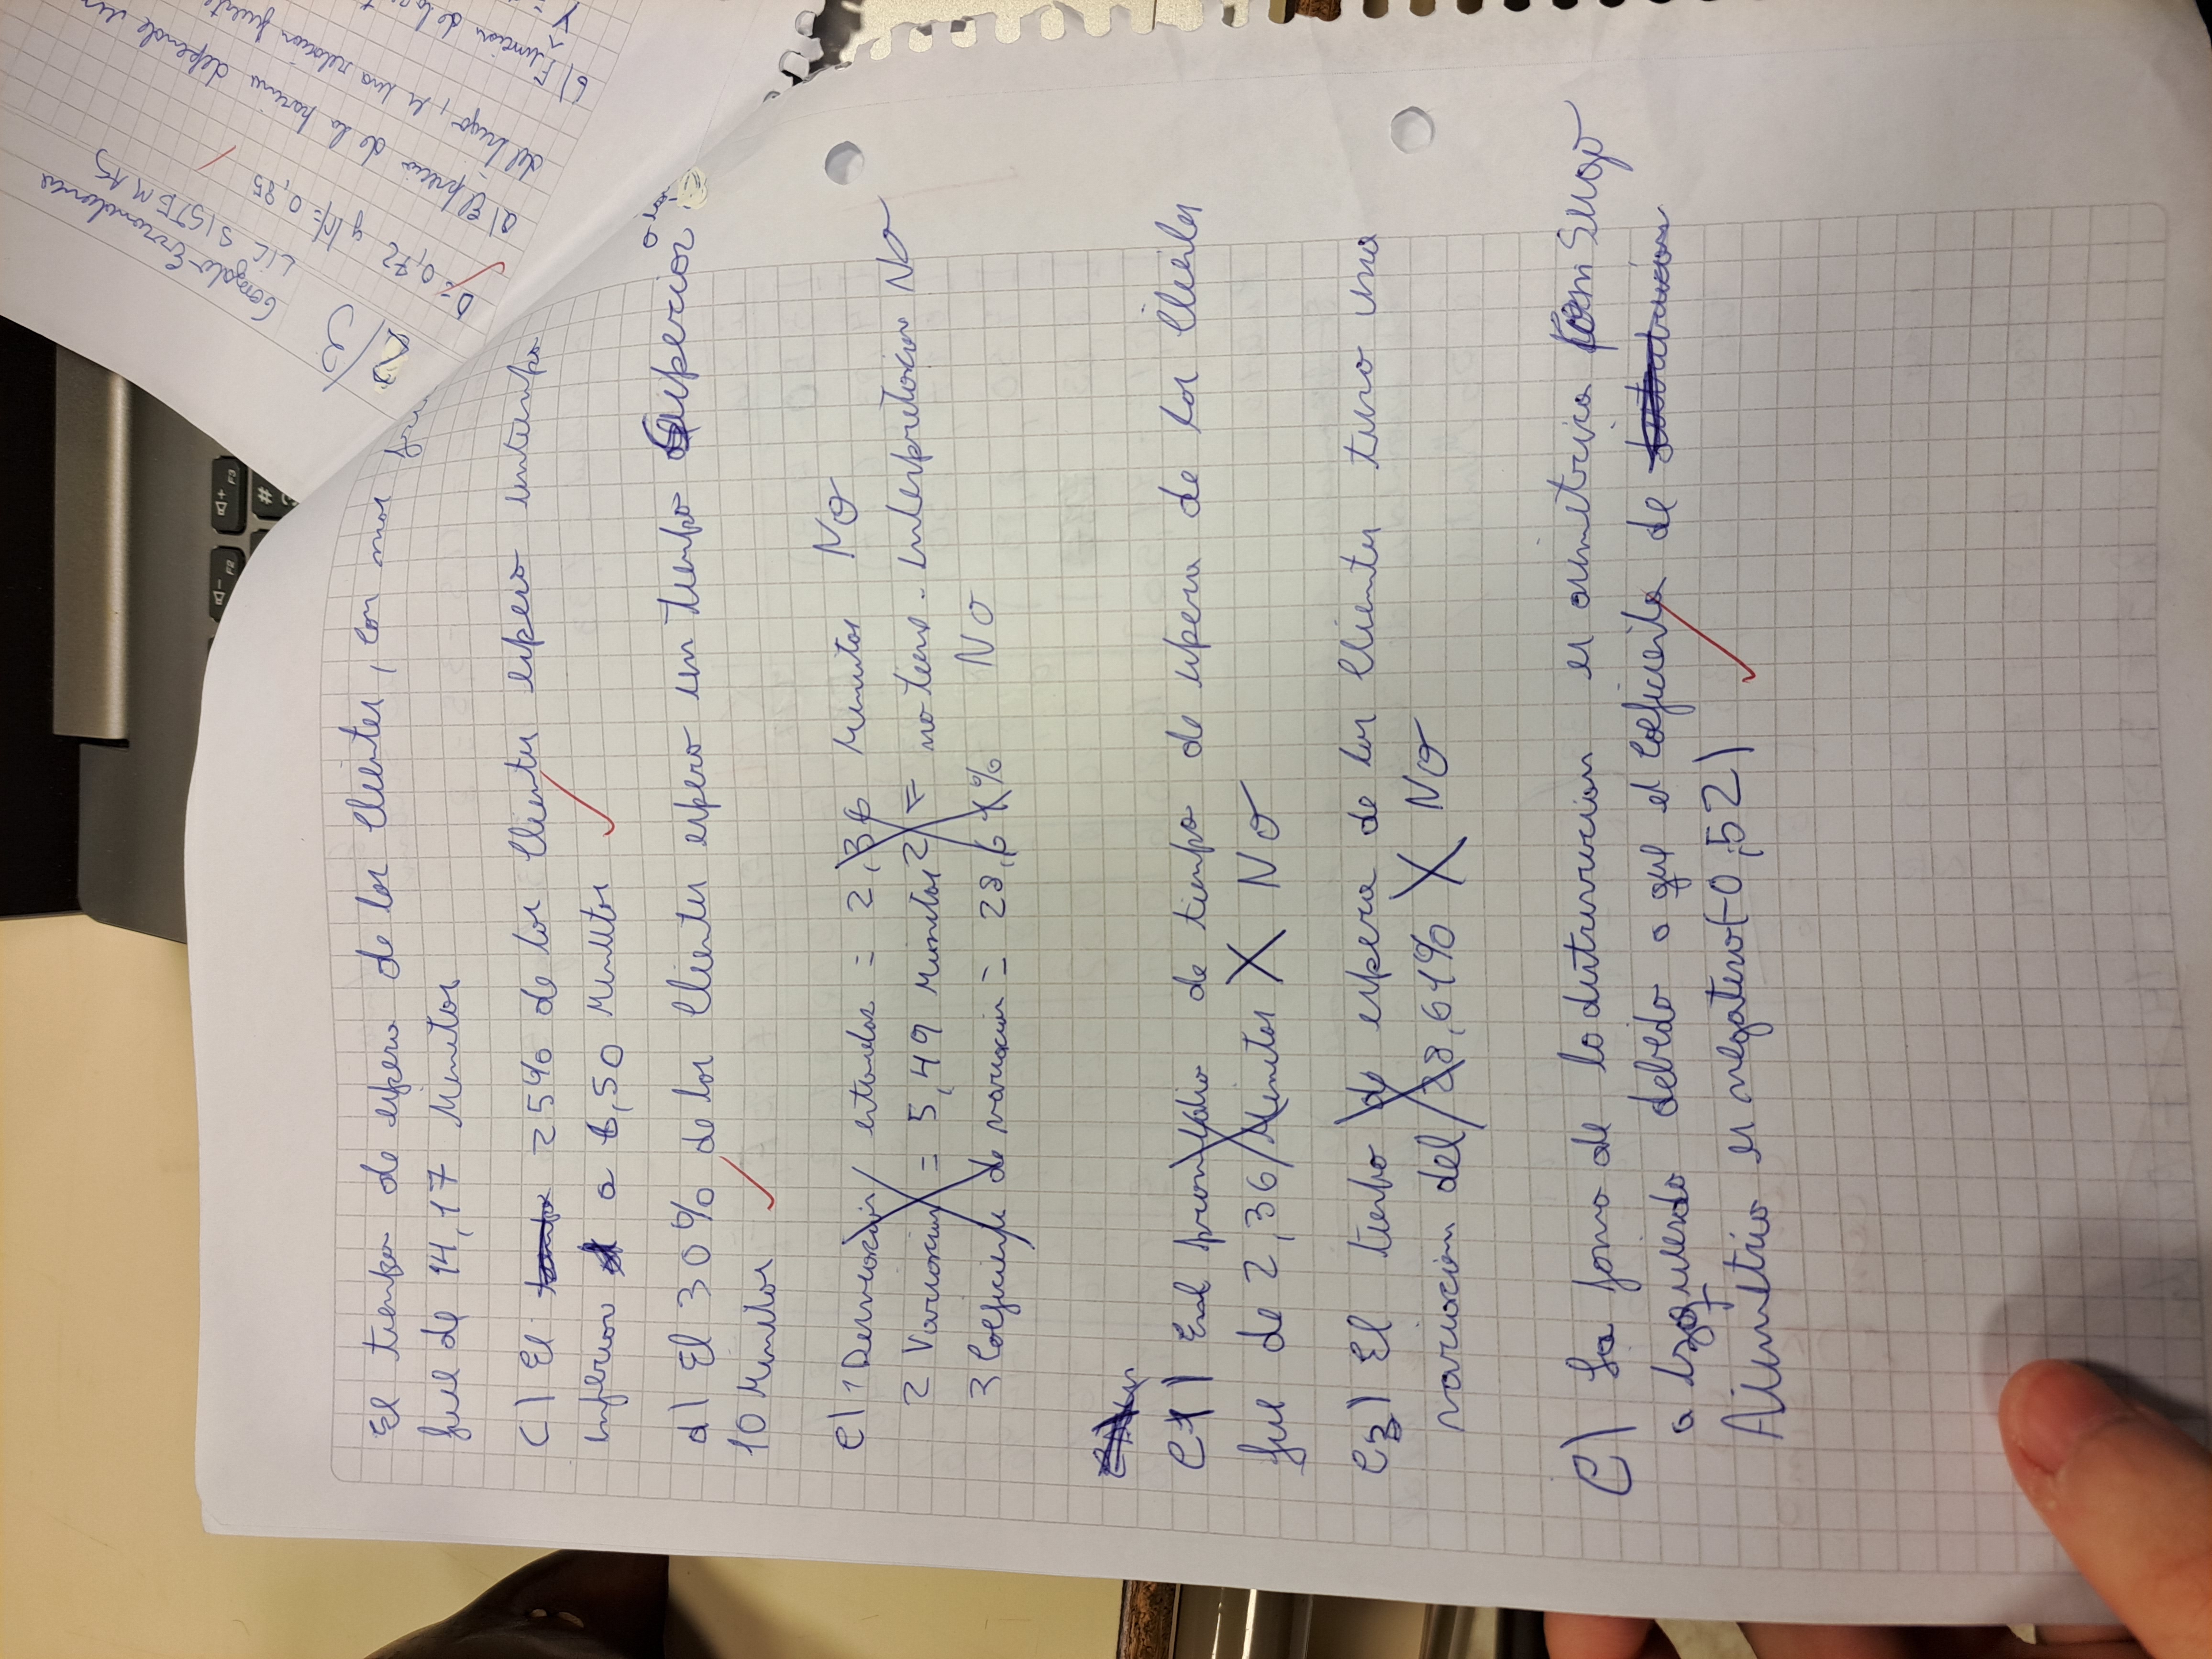 El tiempo de espera de los clientes, con mas
fue de 14,17 Minutos
C) El 25% de los clientes espero un tiempo
inferior a 6,50 Minutos
d) El 30% de los clientes espero un tiempo Superior a los
10 Minutos
e) 1 Desviacion estandar = 2,36 Minutos No
2 Variacion = 5,49 Minutos2 = no tiene interpretacion No
3 Coeficiente de variacion = 28,61% No
e1) En el promedio de tiempo de espera de los clientes
fue de 2,36 Minutos X No
e3) El tiempo de espera de los clientes tuvo una
variacion del 28,61% X No
e) La forma de la distrivucion es asimetrica con Sesgo
a Izquierda debido a que el coeficiente de
Asimetria es negativo (-0,52)
2/3
Gonzalo
LIC SISTEMAS
D= 0,72 y |r|= 0,85
a) El precio de la harina depende
del trigo, es una relacion fuerte
b) Funcion de
ŷ =
F2
F3
#